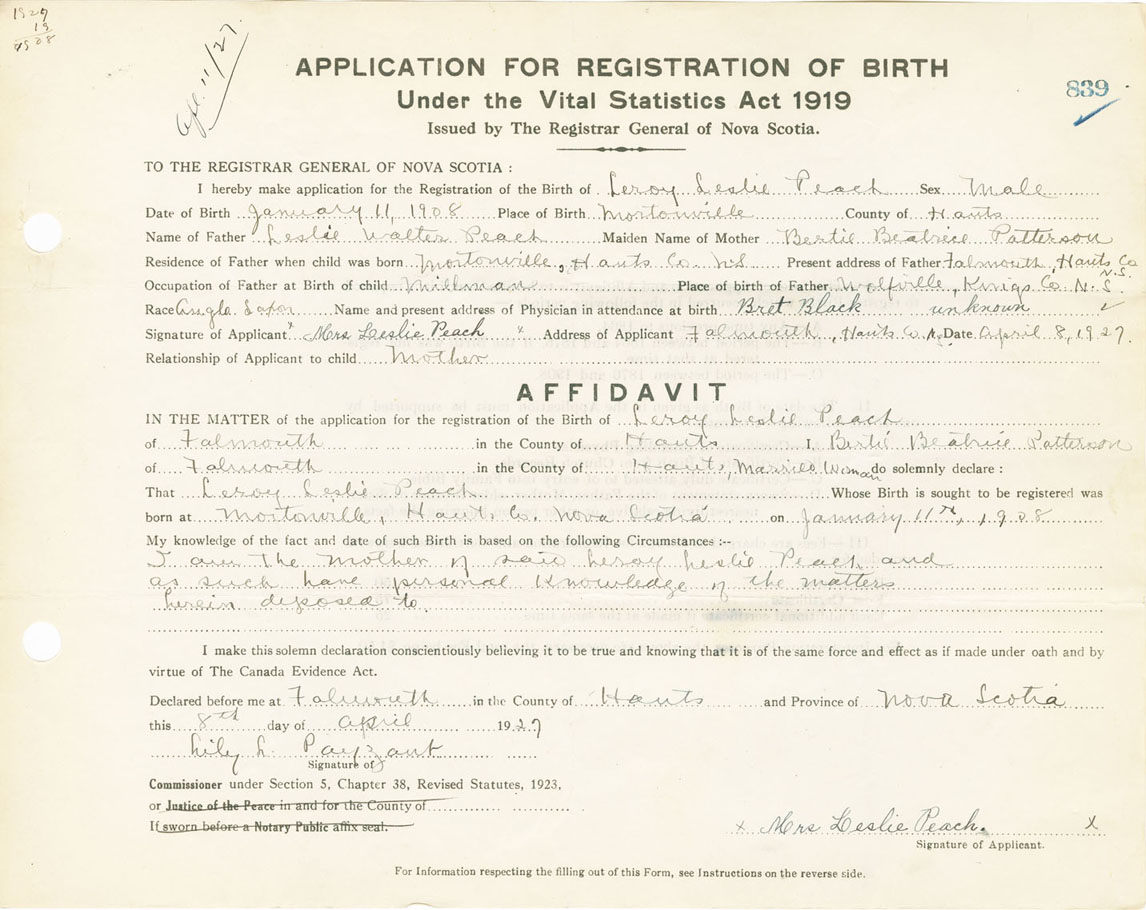 1927
19
1908
Apl. 11/27.
APPLICATION FOR REGISTRATION OF BIRTH
Under the Vital Statistics Act 1919
839
Issued by The Registrar General of Nova Scotia.
TO THE REGISTRAR GENERAL OF NOVA SCOTIA :
I hereby make application for the Registration of the Birth of Leroy Leslie Peach Sex Male
Date of Birth January 11, 1908 Place of Birth Mortonville County of Hants
Name of Father Leslie Walter Peach Maiden Name of Mother Bertie Beatrice Patterson
Residence of Father when child was born Mortonville, Hants Co. N.S. Present address of Father Falmouth, Hants Co N.S.
Occupation of Father at Birth of child Millman Place of birth of Father Wolfville, Kings Co. N.S.
Race Anglo Saxon Name and present address of Physician in attendance at birth Bret Black unknown
Signature of Applicant x Mrs Leslie Peach x Address of Applicant Falmouth, Hants Co. Date April 8, 1927.
Relationship of Applicant to child Mother
AFFIDAVIT
IN THE MATTER of the application for the registration of the Birth of Leroy Leslie Peach
of Falmouth in the County of Hants I, Bertie Beatrice Patterson
of Falmouth in the County of Hants, Married Woman do solemnly declare :
That Leroy Leslie Peach Whose Birth is sought to be registered was
born at Mortonville, Hants Co. Nova Scotia on January 11th, 1908
My knowledge of the fact and date of such Birth is based on the following Circumstances :--
I am the mother of said Leroy Leslie Peach and
as such have personal knowledge of the matters
herein deposed to.
I make this solemn declaration conscientiously believing it to be true and knowing that it is of the same force and effect as if made under oath and by
virtue of The Canada Evidence Act.
Declared before me at Falmouth in the County of Hants and Province of Nova Scotia
this 8th day of April 1927
Lily L. Payzant
Signature of
Commissioner under Section 5, Chapter 38, Revised Statutes, 1923,
or Justice of the Peace in and for the County of
If sworn before a Notary Public affix seal.
x Mrs Leslie Peach. x
Signature of Applicant.
For Information respecting the filling out of this Form, see Instructions on the reverse side.